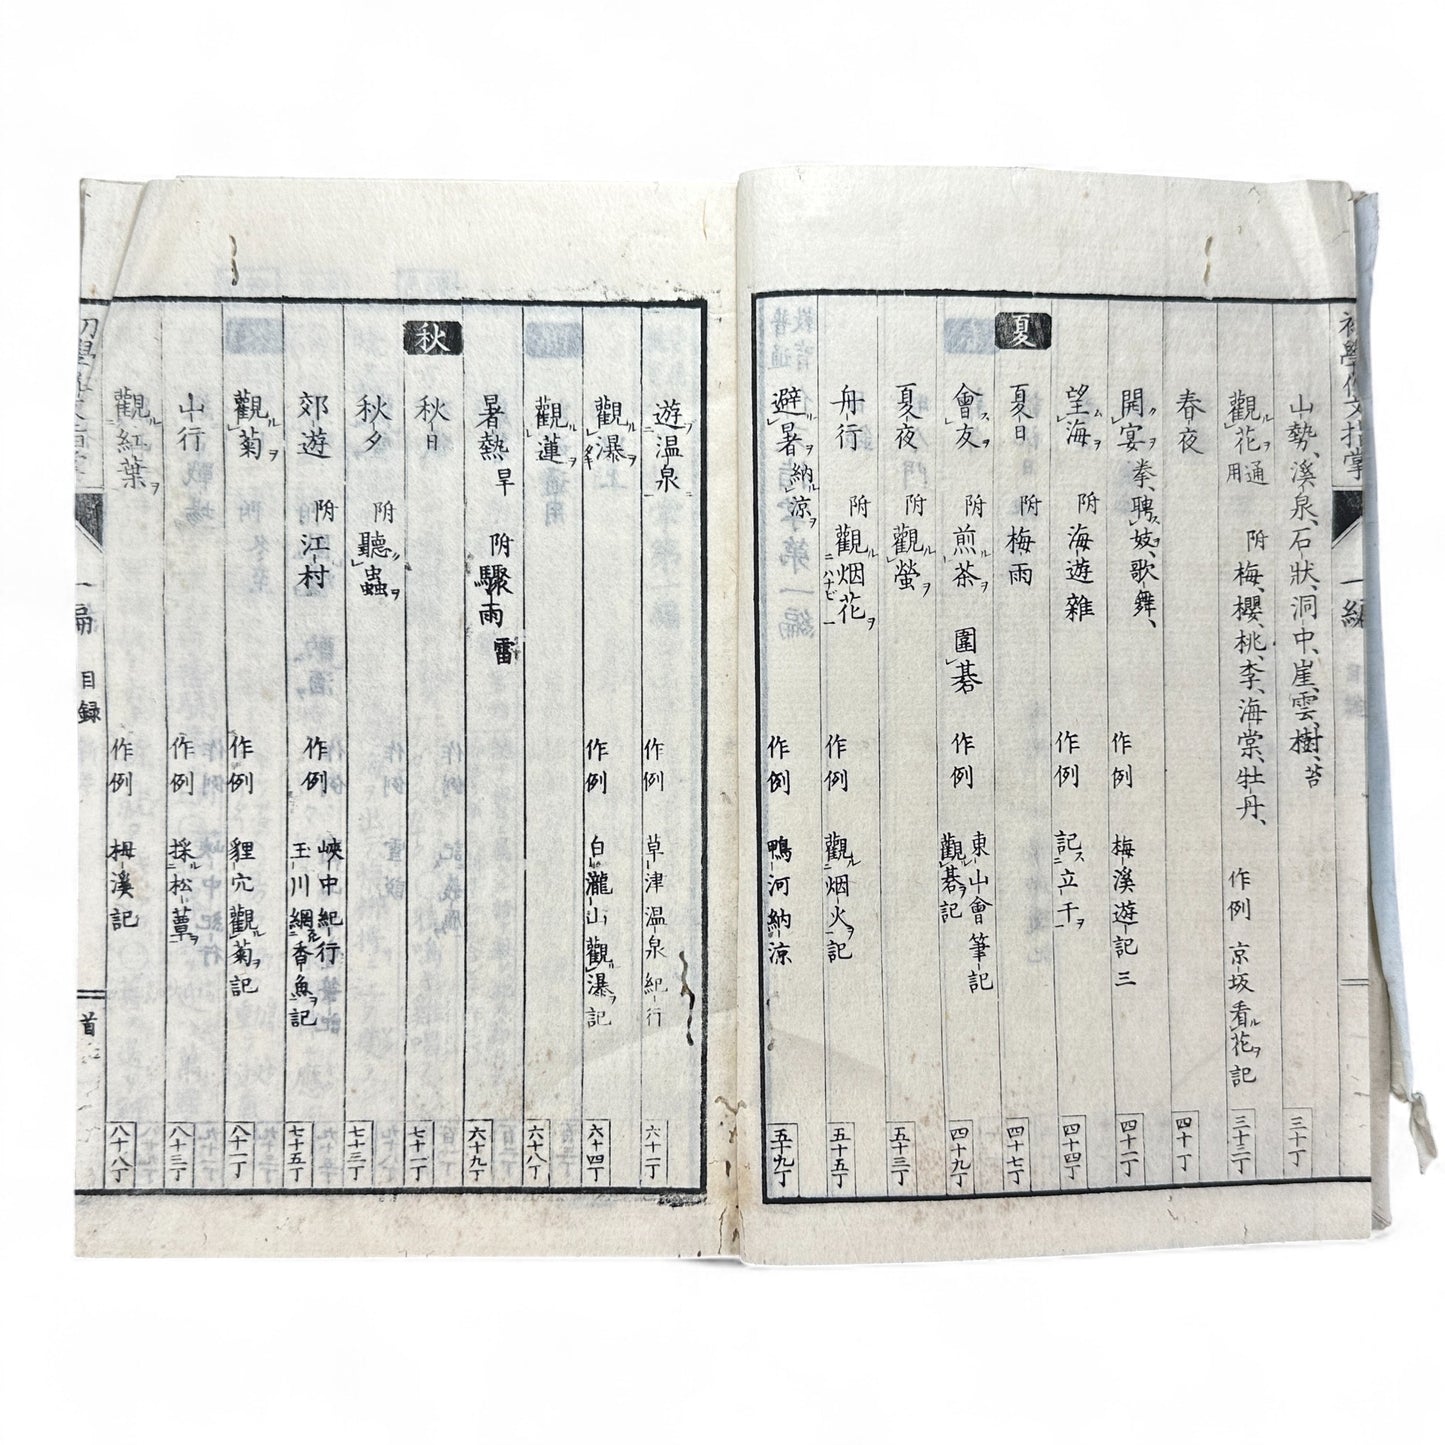 山勢、溪泉、石狀、洞中、崖、雲、樹、苔 三十丁
觀ル花ヲ 通用 附 梅、櫻、桃、李、海棠、牡丹、 作例 京坂看ル花ヲ記 三十三丁
春夜 四十丁
開ク宴ヲ 拳、聘ス妓ヲ、歌舞、 作例 梅溪遊記 三 四十二丁
望ム海ヲ 附 海遊雜 作例 記ス立干ニ 四十四丁
夏
夏日 附 梅雨 四十七丁
會ス友ヲ 附 煎ル茶ヲ 圍碁 作例 東山會筆記 觀ル碁ヲ記 四十九丁
夏夜 附 觀ル螢ヲ 五十三丁
舟行 附 觀ル烟花ヲ 作例 觀ル烟火ヲ記 五十五丁
避ク暑ヲ 納ル涼ヲ 作例 鴨河納涼 五十九丁
遊温泉 作例 草津温泉紀行 六十二丁
觀ル瀑ヲ 作例 白瀧山觀ル瀑ヲ記 六十四丁
觀ル蓮ヲ 六十八丁
暑熱 旱 附 驟雨 雷 六十九丁
秋
秋日 七十二丁
秋夕 附 聽ク蟲ヲ 七十三丁
郊遊 附 江村 作例 峽中紀行 玉川網香魚ヲ記 七十五丁
觀ル菊ヲ 作例 貍穴觀ル菊ヲ記 八十二丁
山行 作例 採ル松蕈ヲ 八十三丁
觀ル紅葉ヲ 作例 栂溪記 八十八丁
一編 目録 首